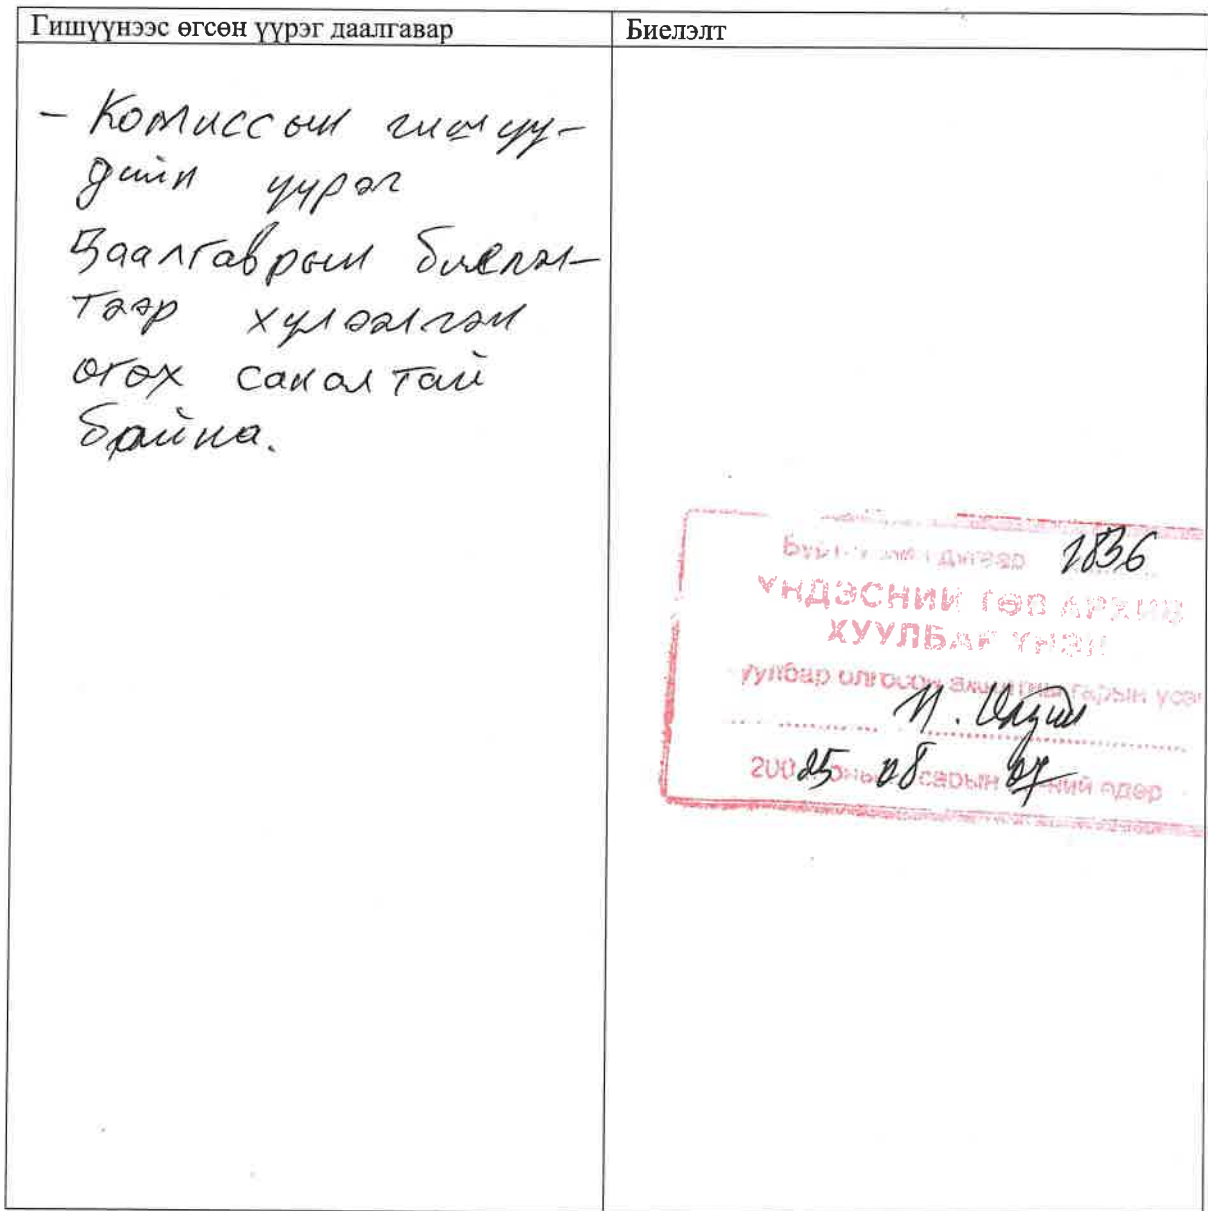 Гишүүнээс өгсөн үүрэг даалгавар
Биелэлт
- Комиссын гишүү-
дийн үүрэг
даалгаврын биелэл-
тээр хүлээлгэн
өгөх саналтай
байна.
дугаар 1836
ҮНДЭСНИЙ ТӨВ АРХИВ
ХУУЛБАР ҮНЭН
хуулбар олгосон гарын үсэг
2025 оны 08 сарын 07 ний өдөр